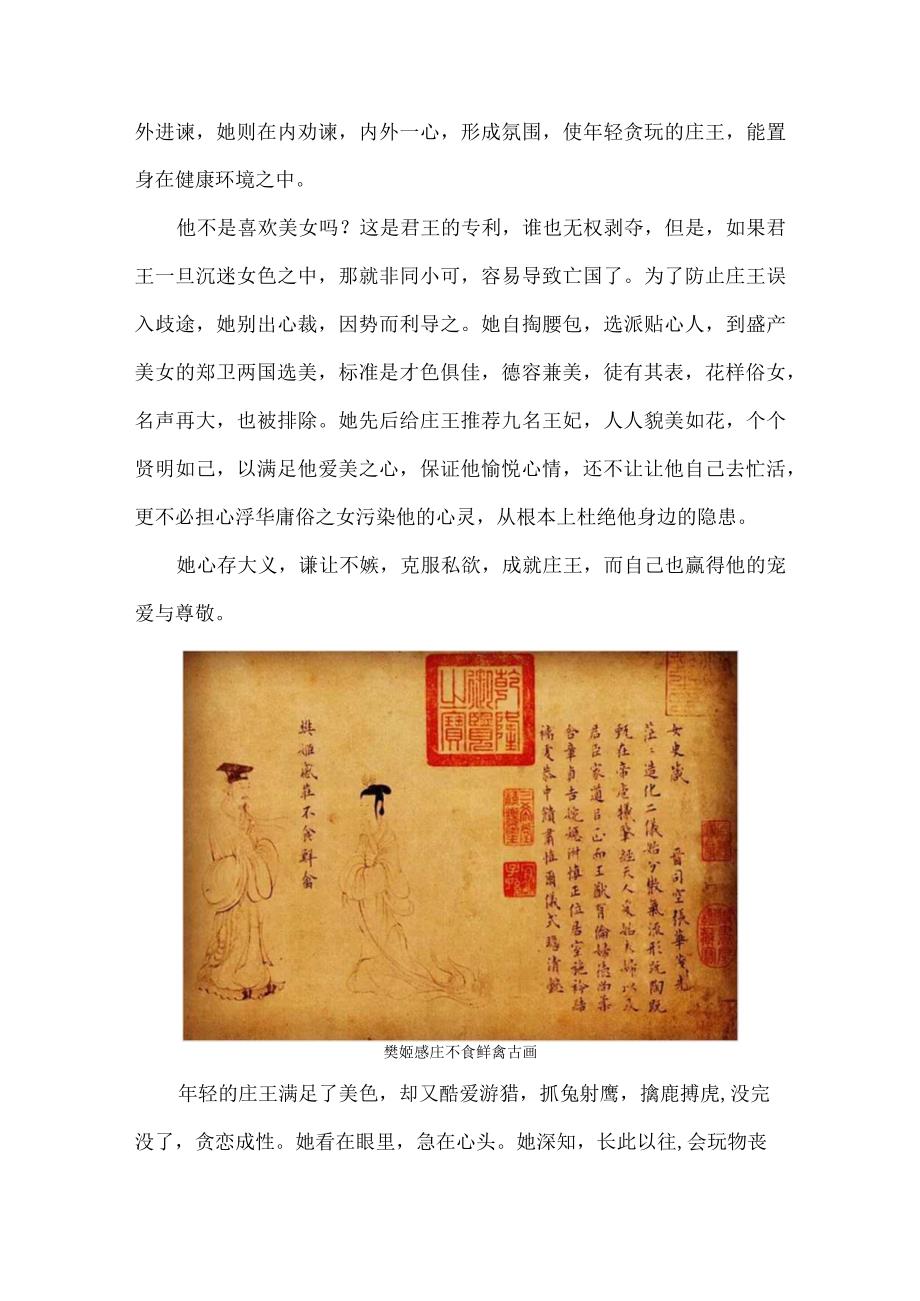 外进谏，她则在内劝谏，内外一心，形成氛围，使年轻贪玩的庄王，能置
身在健康环境之中。
他不是喜欢美女吗？这是君王的专利，谁也无权剥夺，但是，如果君
王一旦沉迷女色之中，那就非同小可，容易导致亡国了。为了防止庄王误
入歧途，她别出心裁，因势而利导之。她自掏腰包，选派贴心人，到盛产
美女的郑卫两国选美，标准是才色俱佳，德容兼美，徒有其表，花样俗女，
名声再大，也被排除。她先后给庄王推荐九名王妃，人人貌美如花，个个
贤明如己，以满足他爱美之心，保证他愉悦心情，还不让让他自己去忙活，
更不必担心浮华庸俗之女污染他的心灵，从根本上杜绝他身边的隐患。
她心存大义，谦让不嫉，克服私欲，成就庄王，而自己也赢得他的宠
爱与尊敬。
乾隆
御覽
之寶
女史箴 晉司空張華茂先
茫〻造化二儀始分散氣流形既陶既
甄在帝庖犧肇經天人爰始夫婦以及
君臣家道以正而王猷有倫婦德尚柔
含章貞吉婉嫕淑慎正位居室施衿結
褵虔恭中饋肅慎爾儀式瞻清懿
樊姬感莊不食鮮禽
樊姬感庄不食鲜禽古画
年轻的庄王满足了美色，却又酷爱游猎，抓兔射鹰，擒鹿搏虎,没完
没了，贪恋成性。她看在眼里，急在心头。她深知，长此以往,会玩物丧